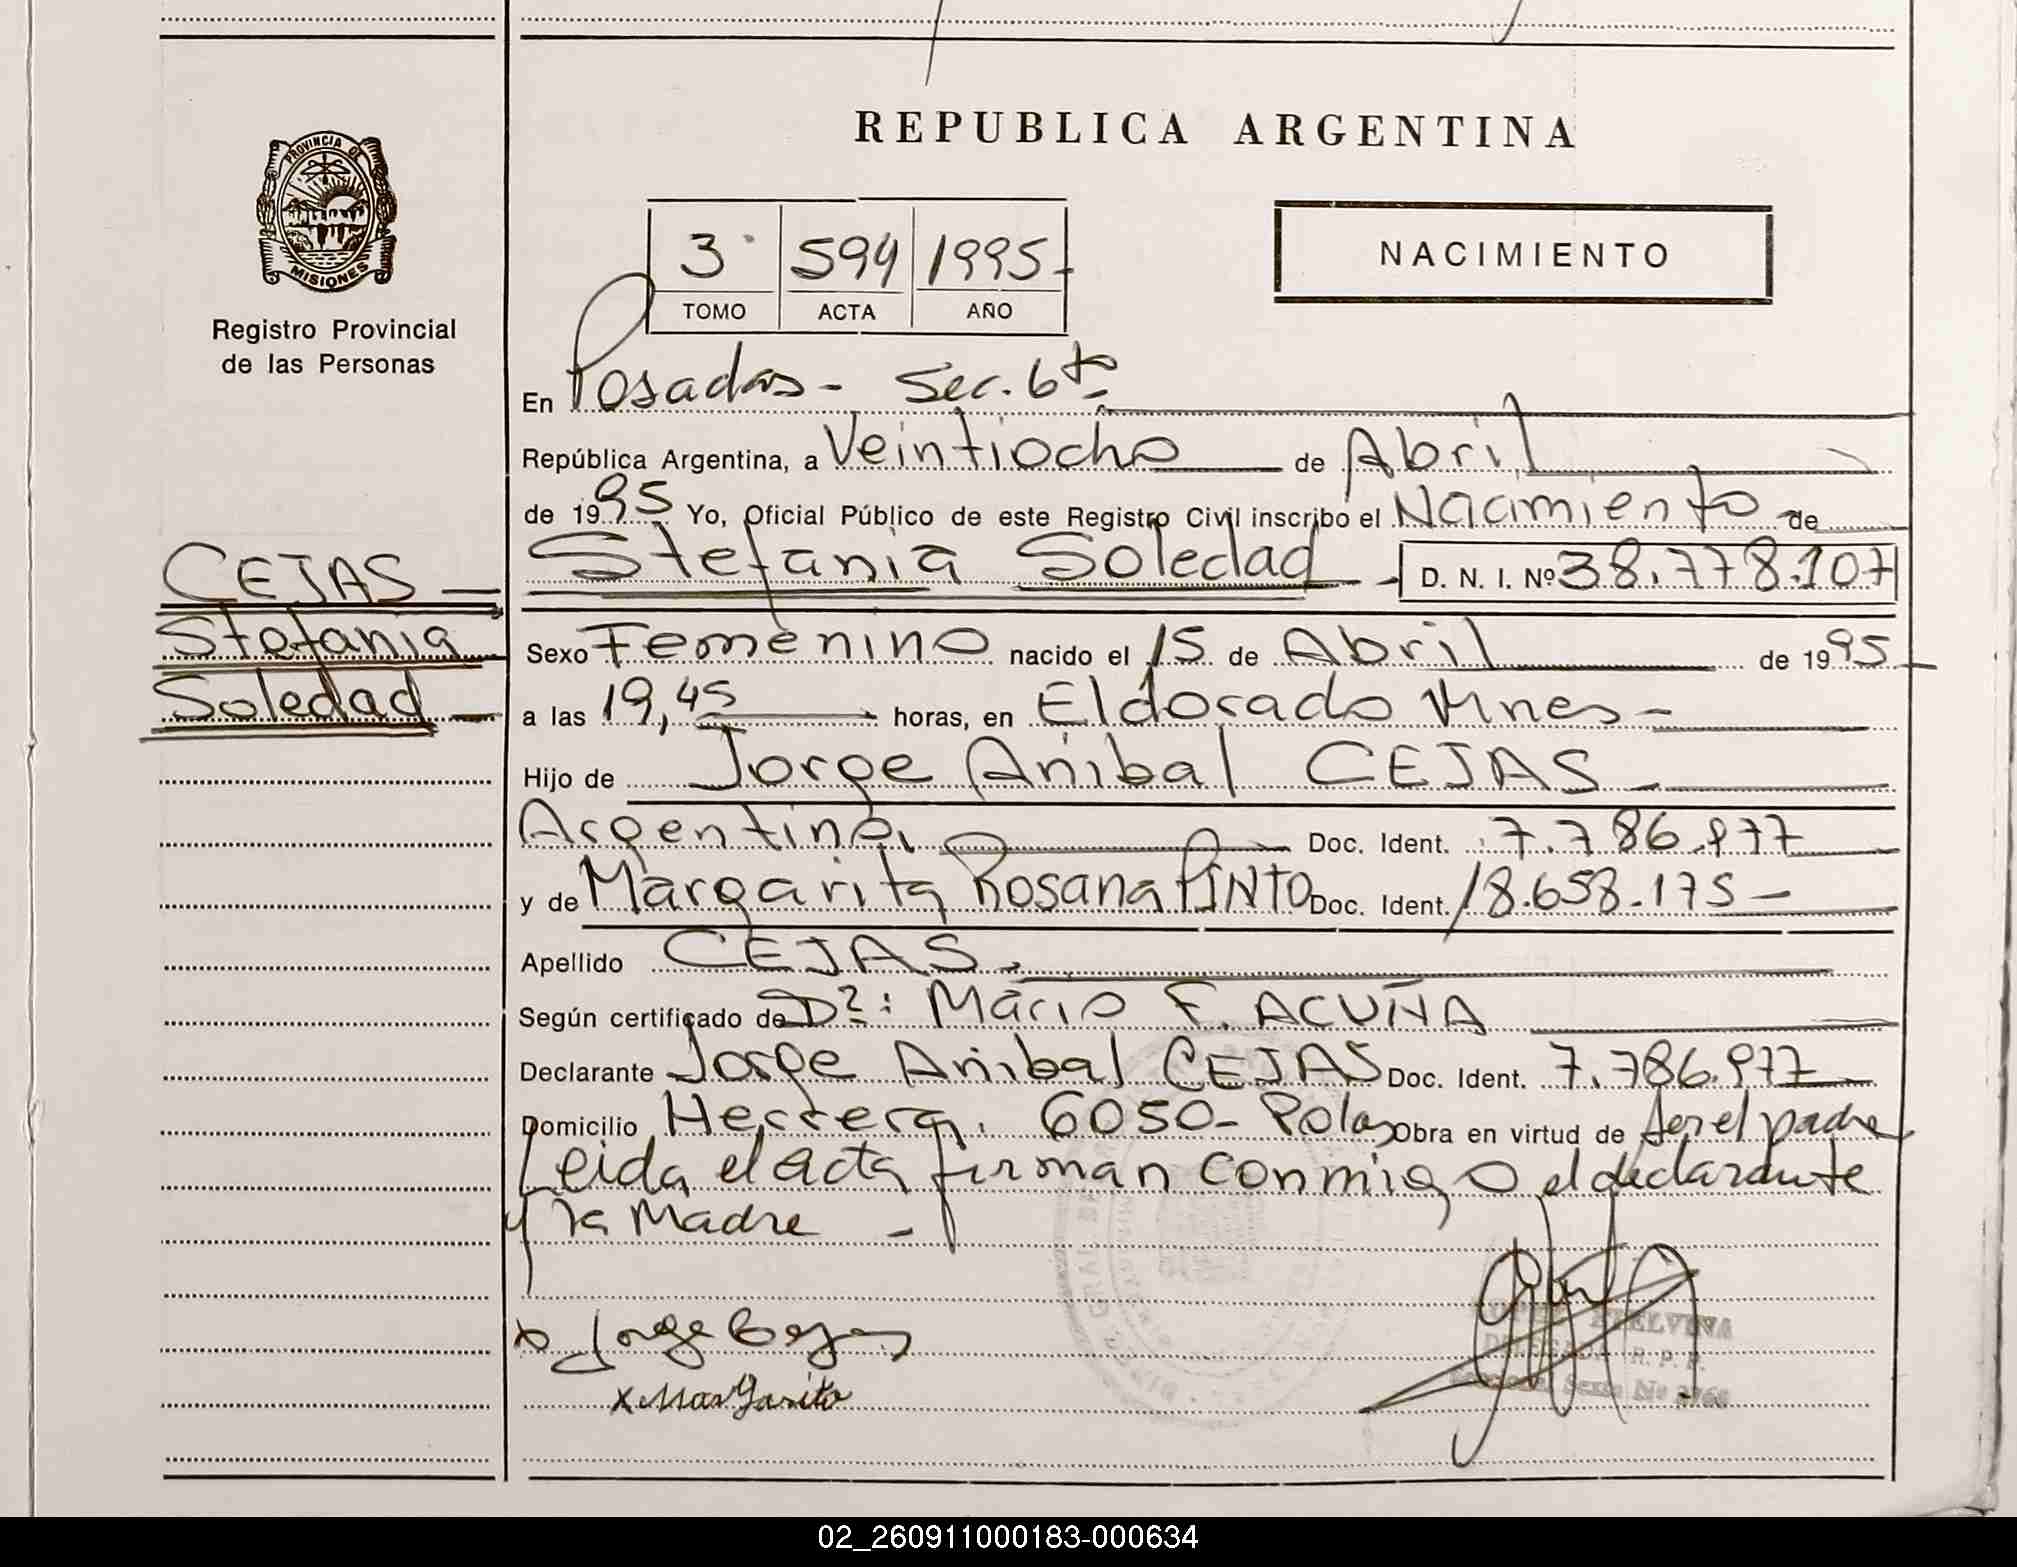 REPUBLICA ARGENTINA
PROVINCIA DE
MISIONES
Registro Provincial
de las Personas
3 594 1995
TOMO ACTA AÑO
NACIMIENTO
En Posadas - Sec. 6ta
República Argentina, a Veintiocho de Abril
de 1995 Yo, Oficial Público de este Registro Civil inscribo el Nacimiento de
Stefania Soledad D. N. I. Nº 38.778.107
CEJAS
Stefania
Soledad
Sexo Femenino nacido el 15 de Abril de 1995
a las 19,45 horas, en Eldorado Mnes-
Hijo de Jorge Anibal CEJAS
Argentino, Doc. Ident. 7.786.977
y de Margarita Rosana PINTO Doc. Ident. 18.658.175
Apellido CEJAS
Según certificado de Dr: Mario F. ACUÑA
Declarante Jorge Anibal CEJAS Doc. Ident. 7.786.977
Domicilio Herrera. 6050- Pdas Obra en virtud de ser el padre
Leida el acta firman conmigo el declarante
y la Madre -
x Jorge Cejas
x Margarita
ETELVINA
R. P. P.
02_260911000183-000634